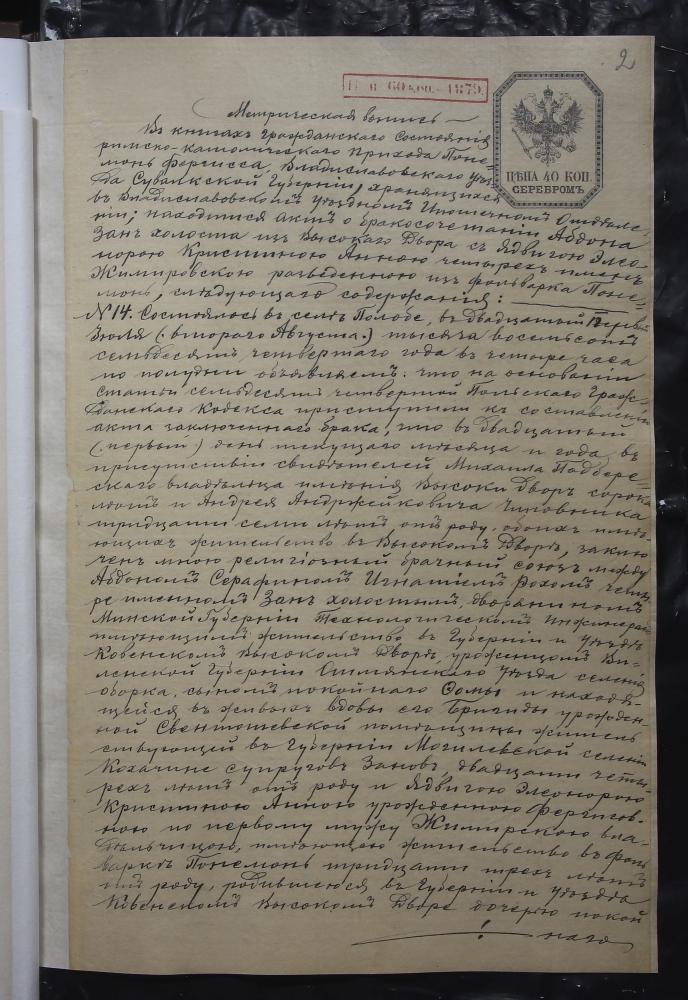 2
Ц. п. 60 коп. 1879.
ЦѢНА 40 КОП.
СЕРЕБРОМЪ
Метрическая выпись
Въ книгахъ Гражданскаго Состоянія
римско-католическаго прихода Поне-
монь Фергисса, Владиславовскаго уѣз-
да Сувалкской Губерніи, хранящихся
въ Владиславовскомъ уѣздномъ Ипотечномъ Отдѣле-
ніи; находится актъ о бракосочетаніи Абдона
Занъ холоста изъ Высокаго Двора съ Ядвигою Элео-
норою Кристиною Анною четырехъ именъ
Жимировскою разведенною изъ фольварка Поне-
монь, слѣдующаго содержанія:
№ 14. Состоялось въ селѣ Полобе, въ двадцатый первый
Іюля (втораго Августа) тысяча восемьсотъ
семьдесятъ четвертаго года въ четыре часа
по полудни объявляемъ: что на основаніи
статьи семьдесятъ четвертой Польскаго Граж-
данскаго Кодекса приступили къ составленію
акта заключеннаго брака, что въ двадцатый
(первый) день текущаго мѣсяца и года, въ
присутствіи свидѣтелей Михаила Подбере-
скаго владѣльца имѣнія Высоки Дворъ сорока
лѣтъ и Андрея Андржейковича чиновника
тридцати семи лѣтъ отъ роду, обоихъ имѣ-
ющихъ жительство въ Высокомъ Дворѣ, заклю-
ченъ мною религіозный брачный союзъ между
Абдономъ Серафиномъ Игнатіемъ Рохомъ четы-
ре именномъ Занъ холостымъ, дворяниномъ
Минской Губерніи Технологическомъ Инженеромъ
имѣющимъ жительство въ Губерніи и уѣздѣ
Ковенскомъ Высокомъ Дворѣ, уроженцомъ Ви-
ленской Губерніи Ошмянскаго уѣзда селенія
оборка, сыномъ покойнаго Ѳомы и находя-
щейся въ живыхъ вдовы его Бригиды урожден-
ной Свентошевской помѣщицы житель-
ствующей въ Губерніи Могилевской селеніи
Кохачине супруговъ Зановъ, двадцати четы-
рехъ лѣтъ отъ роду и Ядвигою Элеонорою
Кристиною Анною урожденною Фергисов-
ною по первому мужу Жимирскою вла-
дѣльчицою, имѣющею жительство въ фоль-
варкѣ Понемонь тридцати трехъ лѣтъ
отъ роду, родившеюся въ Губерніи и уѣздѣ
Ковенскомъ Высокомъ Дворе дочерью покой
наго